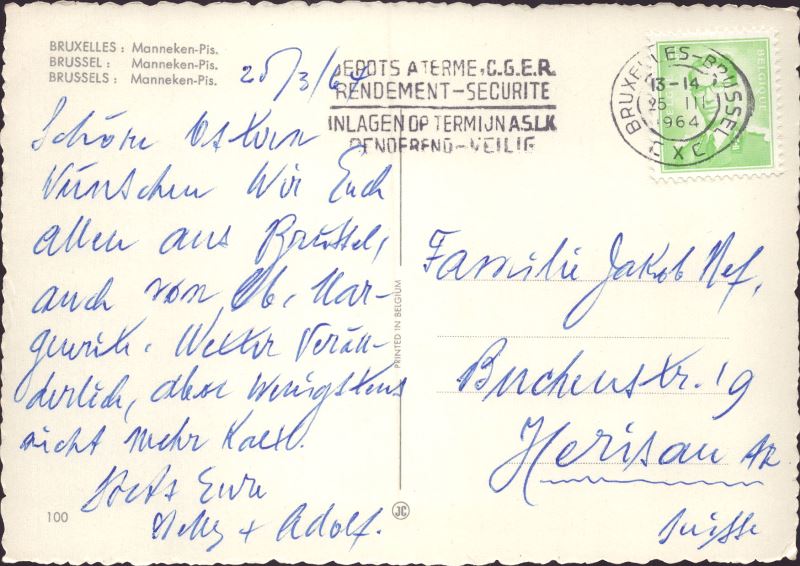 BRUXELLES : Manneken-Pis.
BRUSSEL : Manneken-Pis.
BRUSSELS : Manneken-Pis.
25/3/64
DEPOTS A TERME C.G.E.R.
RENDEMENT-SECURITE
INLAGEN OP TERMIJN A.S.L.K
RENDEREND-VEILIG
BRUXELLES-BRUSSEL
13-14
25 III
1964
BELGIQUE
Schöne Ostern
Wünschen Wir Euch
allen aus Brüssel,
auch von Ob. Mar-
Wetter Verän-
derlich, aber Wenigstens
nicht mehr Kalt.
Stets Eure
+ Adolf.
PRINTED IN BELGIUM
Familie Jakob Nef.
Buchenstr. 19
Herisau AR
Suisse
100
JC